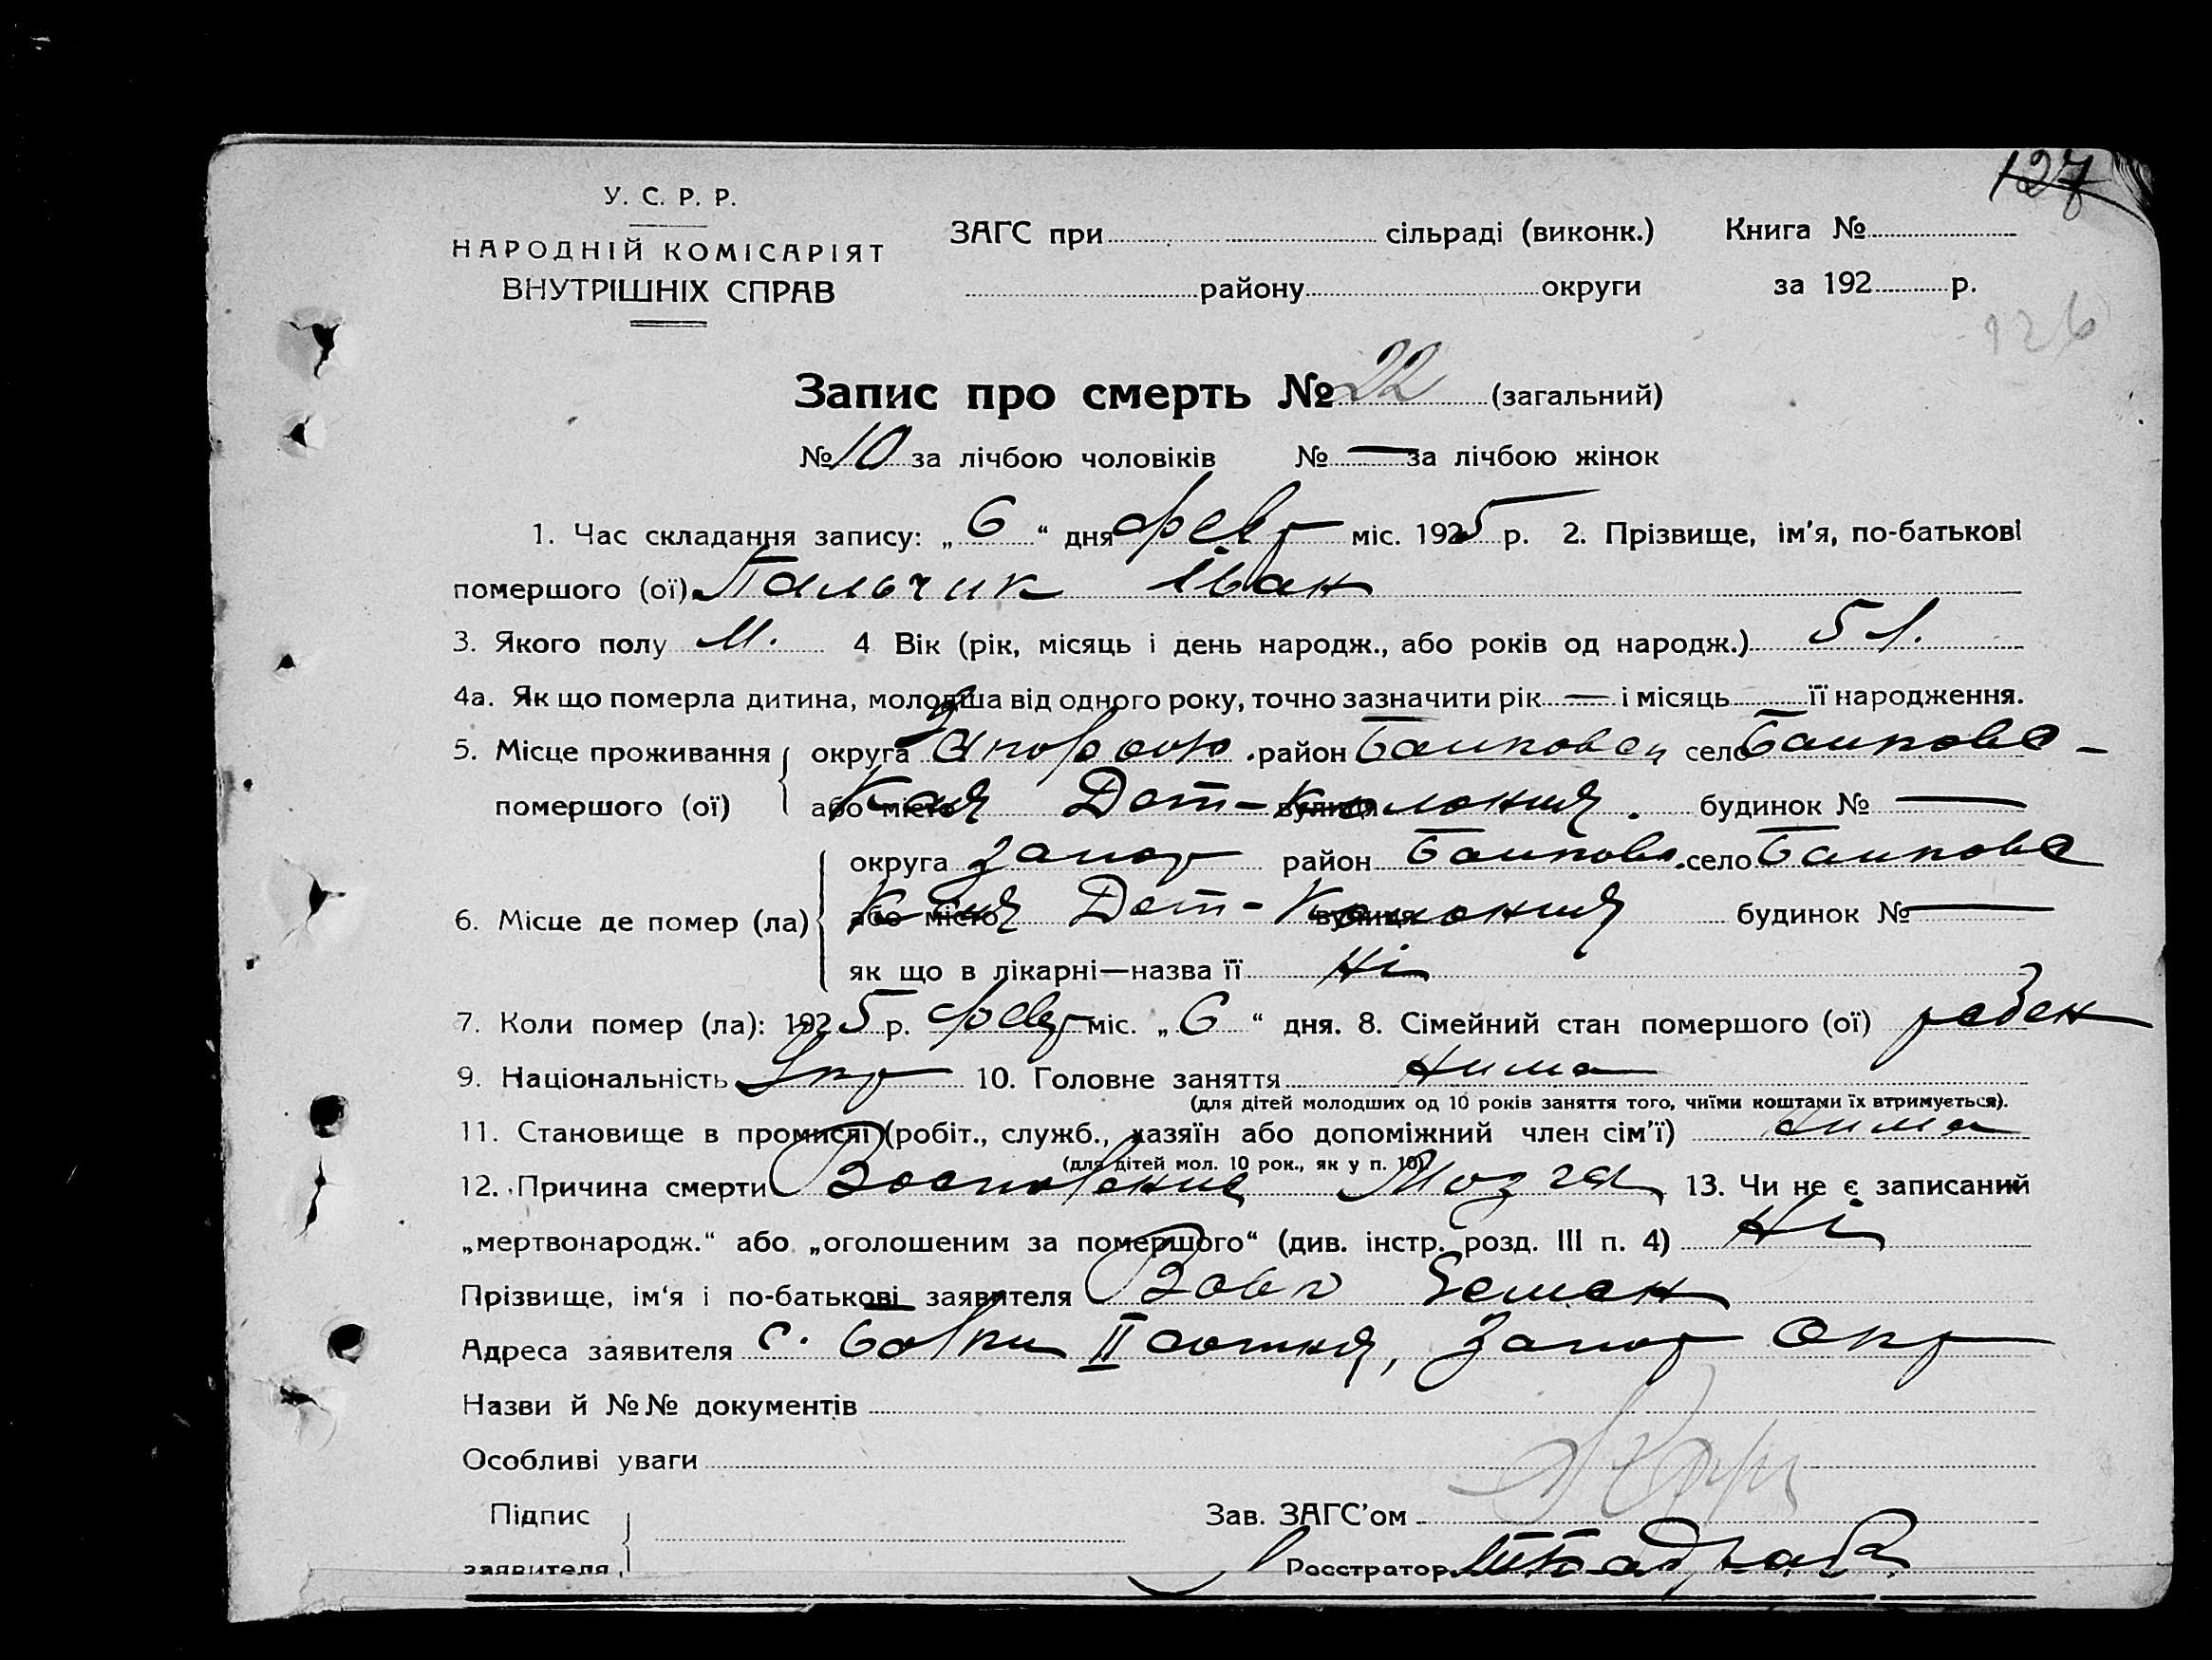 127
У. С. Р. Р.
НАРОДНІЙ КОМІСАРІЯТ
ВНУТРІШНІХ СПРАВ
ЗАГС при сільраді (виконк.) Книга №
району округи за 192 р.
126
Запис про смерть № 22 (загальний)
№ 10 за лічбою чоловіків № — за лічбою жінок
1. Час складання запису: „ 6 “ дня февр міс. 1925 р. 2. Прізвище, ім'я, по-батькові
помершого (ої) Пальчик Іван
3. Якого полу М. 4 Вік (рік, місяць і день народж., або років од народж.) 5 л.
4а. Як що померла дитина, молодша від одного року, точно зазначити рік — і місяць її народження.
5. Місце проживання округа район село
помершого (ої) або місто кая Дет-колония. вулиця будинок № —
округа Запор район село
6. Місце де помер (ла) або місто кая Дет-Колония вулиця будинок № —
як що в лікарні—назва її Ні
7. Коли помер (ла): 1925 р. февр міс. „ 6 “ дня. 8. Сімейний стан помершого (ої)
9. Національність Укр 10. Головне заняття нима
(для дітей молодших од 10 років заняття того, чиїми коштами їх втримується).
11. Становище в промислі (робіт., служб., хазяїн або допоміжний член сім'ї) нима
(для дітей мол. 10 рок., як у п. 10)
12. Причина смерти Воспаление Мозга 13. Чи не є записаний
„мертвонародж.“ або „оголошеним за помершого“ (див. інстр. розд. III п. 4) Ні
Прізвище, ім'я і по-батькові заявителя Вовк Семен
Адреса заявителя с. II сотня, Запор Окр
Назви й №№ документів
Особливі уваги
Підпис Зав. ЗАГС'ом
заявителя Реєстратор